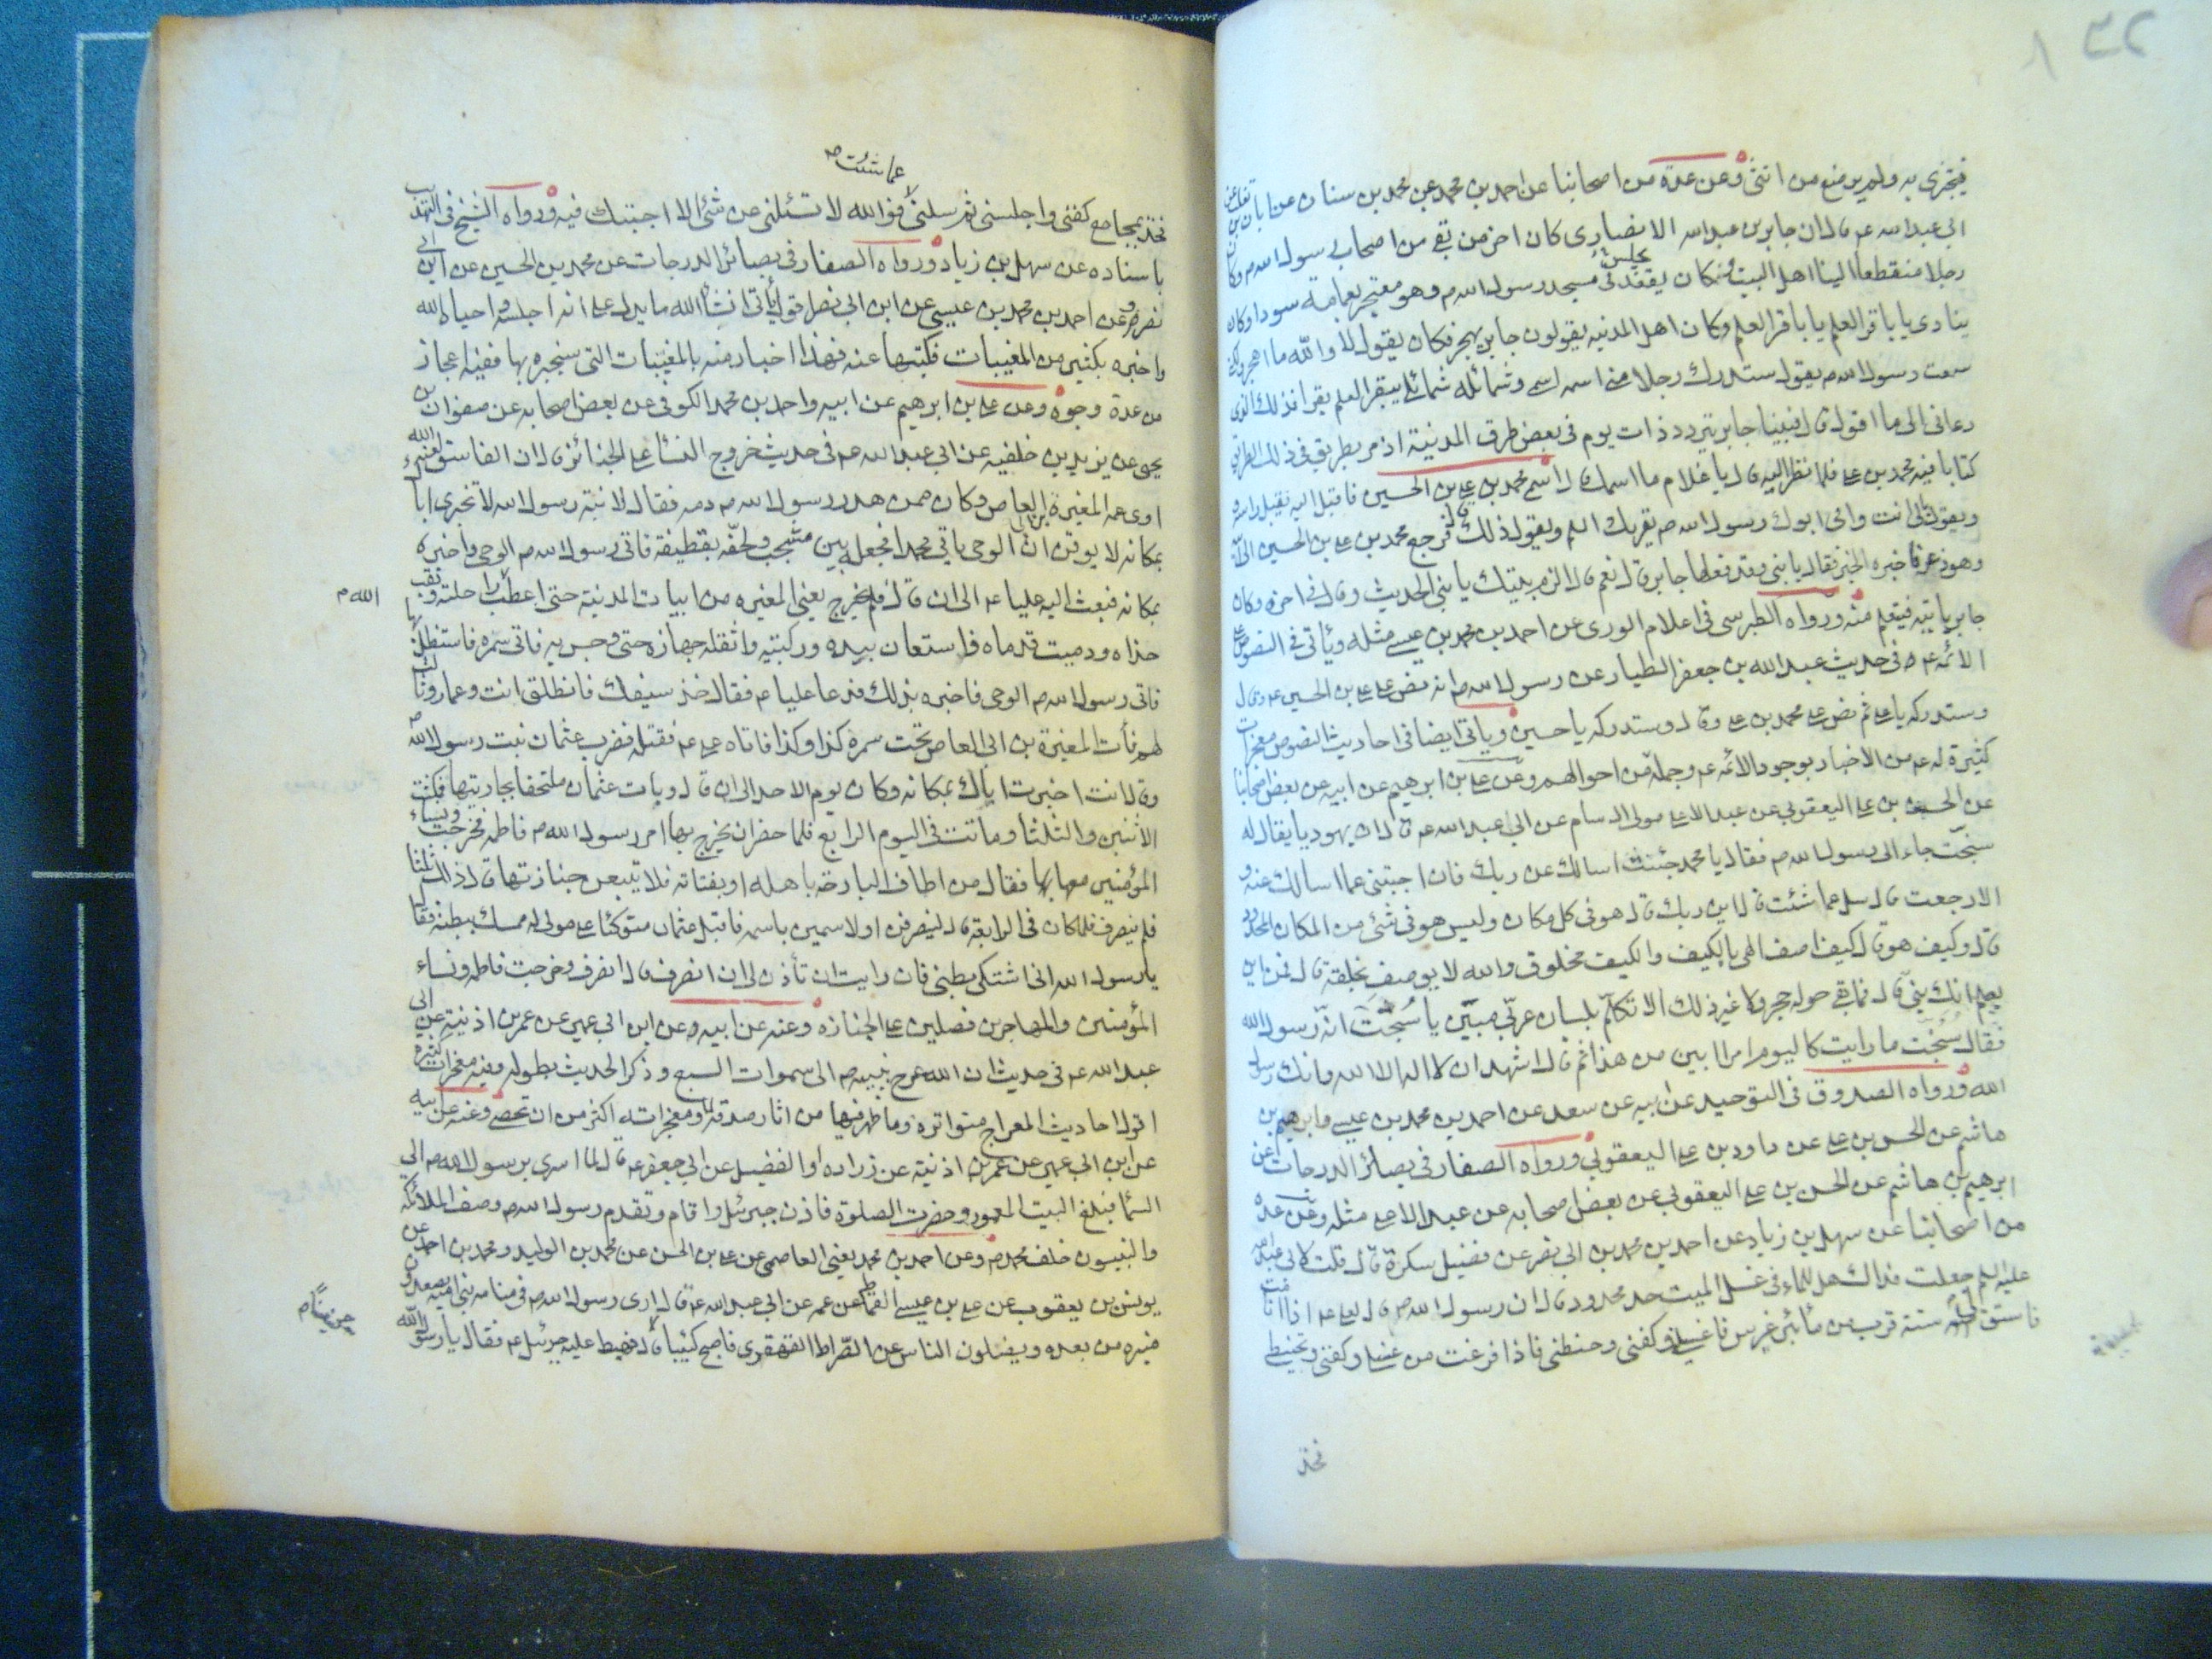 ١٣٢
فيجزى به ولم يرمنع من انثى وعن عدة من اصحابنا عن احمد بن محمد عن محمد بن سنان عن ابان بن تغلب عن
ابى عبد الله عم قال ان جابر بن عبد الله الانصارى كان اخر من بقى من اصحاب رسول الله ص وكان
رجلا منقطعا الينا اهل البيت فكان يقعد فى مسجد رسول الله ص وهو معتجر بعمامة سودا وكان
ينادى يا باقر العلم يا باقر العلم وكان اهل المدينه يقولون جابر يهجر فكان يقول لا والله ما اهجر ولكنى
سمعت رسول الله ص يقول ستدرك رجلا منى اسمه اسمى وشمائله شمائلى يبقر العلم بقرا فذلك الذى
دعانى الى ما اقول قال فبينا جابر يتردد ذات يوم فى بعض طرق المدينة اذ مر بطريق فى ذلك الطريق
كتابا فيه محمد بن على فلما نظر اليه قال يا غلام ما اسمك قال اسمى محمد بن على بن الحسين فاقبل اليه يقبل راسه
ويقول بابى انت وامى ابوك رسول الله ص يقرئك السلم ويقول ذلك قال فرجع محمد بن على بن الحسين الى ابيه
وهو ذعر فاخبره الخبر فقال يا بنى وقد فعلها جابر قال نعم قال الزم بيتك يا بنى الحديث وقال فى اخره وكان
جابر ياتيه فيتعلم منه ورواه الطبرسى فى اعلام الورى عن احمد بن محمد بن عيسى مثله ويأتى فى النصوص على
الائمه عم فى حديث عبد الله بن جعفر الطيار عن رسول الله ص انه نص على على بن الحسين عم وقال
وستدركه يا على ثم نص على محمد بن على وقال وستدركه يا حسين وياتى ايضا فى احاديث النصوص معجزات
كثيرة له عم من الاخبار بوجود الائمه عم وجملة من احوالهم وعن على بن ابرهيم عن ابيه عن بعض اصحابنا
عن الحسن بن على اليعقوبى عن عبد الاعلى مولى ال سام عن ابى عبد الله عم قال ان يهوديا يقال له
سبحت جاء الى رسول الله ص فقال يا محمد جئت اسالك عن ربك فان اجبتنى عما اسالك عنه و
الا رجعت قال سل عما شئت قال اين ربك قال هو فى كل مكان وليس هو فى شئ من المكان المحدود
قال وكيف هو قال كيف اصف الهى بالكيف والكيف مخلوق والله لا يوصف بخلقه قال فمن اين
يعلم انك نبى قال فما بقى حوله حجر ولا غير ذلك الا تكلم بلسان عربى مبين يا سبحت انه رسول الله
فقال سبحت ما رايت كاليوم امرا ابين من هذا ثم قال اشهد ان لا اله الا الله وانك رسول
الله ورواه الصدوق فى التوحيد عن ابيه عن سعد عن احمد بن محمد بن عيسى وابرهيم بن
هاشم عن الحسن بن على عن داود بن على اليعقوبى ورواه الصفار فى بصائر الدرجات عن
ابرهيم بن هاشم عن الحسن بن على اليعقوبى عن بعض اصحابه عن عبد الاعلى مثله وعن عدة
من اصحابنا عن سهل بن زياد عن احمد بن محمد بن ابى نصر عن فضيل سكرة قال قلت لابى عبد الله
عليه السلم جعلت فداك هل للماء فى غسل الميت حد محدود قال ان رسول الله ص قال لعلى عم اذا انا مت
فاستق لى ستة قرب من ماء بئر غرس فاغسلنى وكفنى وحنطنى فاذا فرغت من غسلى وكفنى وتحنيطى
فخذ
عما شئت صه
فخذ بمجامع كفنى واجلسنى ثم سلنى فوالله لا تسئلنى عن شئ الا اجبتك فيه ورواه الشيخ فى التهذيب
باسناده عن سهل بن زياد ورواه الصفار فى بصائر الدرجات عن محمد بن الحسين عن ابن ابى
نصر وعن احمد بن محمد بن عيسى عن ابن ابى نصر اقول يأتى انشاء الله ما يدل على انه اجلسه واحياه الله
واخبره بكثير من المغيبات فكتبها عنه فهذا اخبار منه بالمغيبات التى سيخبره بها ففيه اعجاز
من عدة وجوه وعن على بن ابرهيم عن ابيه واحمد بن محمد الكوفى عن بعض اصحابه عن صفوان بن
يحيى عن يزيد بن خليفه عن ابى عبد الله عم فى حديث خروج النساء على الجنائز قال ان الفاسق لعنه الله
اوى عمه المغيرة بن ابى العاص وكان ممن هدر رسول الله ص دمه فقال لابنة رسول الله لا تخبرى اباك
بمكانه كانه لا يوقن ان الوحى ياتى محمدا فجعله بين مشجب ولحفه بقطيفه فاتى رسول الله ص الوحى واخبره
بمكانه فبعث اليه عليا عم الى ان قال فلم يخرج يعنى المغيره من ابيات المدينة حتى اعطب الله راحلته ونقب
حذاه ودميت قدماه فاستعان بيده وركبتيه واثقله جهازه حتى وجس به فاتى سمره فاستظل بها
فاتى رسول الله ص الوحى فاخبره بذلك فدعا عليا عم فقال خذ سيفك فانطلق انت وعمار وثالث
لهم فأت المغيرة بن ابى العاص تحت سمرة كذا وكذا فاتاه على عم فقتله فضرب عثمان بنت رسول الله ص
وقال انت اخبرت اباك بمكانه وكان يوم الاحد الى ان قال وبات عثمان ملتحفا بجاريتها فمكثت
الاثنين والثلثا وماتت فى اليوم الرابع فلما حضر ان يخرج بها امر رسول الله ص فاطمه فخرجت ونساء
المؤمنين معها فقال من اطاف البارحة باهله او بفتاته فلا يتبعن جنازتها قال ذلك ثلثا
فلم ينصرف فلما كان فى الرابعة قال لينصرفن او لاسمين باسمه فاقبل عثمان متوكئا على مولى له ممسك ببطنه فقال
يا رسول الله انى اشتكى بطنى فان رايت ان تأذن لى ان انصرف قال انصرف وخرجت فاطمه ونساء
المؤمنين والمهاجرين فصلين على الجنازه وعنه عن ابيه وعن ابن ابى عمير عن عمر بن اذينة عن ابى
عبد الله عم فى حديث ان الله عرج بنبيه ص الى سموات السبع وذكر الحديث بطوله وفيه معجزات كثيره
اقول احاديث المعراج متواتره وما ظهر فيها من اثار صدقه ومعجزاته اكثر من ان تحصى وعنه عن ابيه
عن ابن ابى عمير عن عمر بن اذينة عن زراره او الفضيل عن ابى جعفر عم قال لما اسرى برسول الله ص الى
السماء فبلغ البيت المعمور وحضرت الصلوة فاذن جبرئيل واقام وتقدم رسول الله ص وصف الملائكه
والنبيون خلف محمد ص وعن احمد بن محمد يعنى العاصمى عن على بن الحسن عن محمد بن الوليد ومحمد بن احمد عن
يونس بن يعقوب عن على بن عيسى القماط عن عمه عن ابى عبد الله عم قال ارى رسول الله ص فى منامه بنى اميه يصعدون
منبره من بعده ويضلون الناس عن الصراط القهقرى فاصبح كئيبا قال فهبط عليه جبرئيل عم فقال يا رسول الله